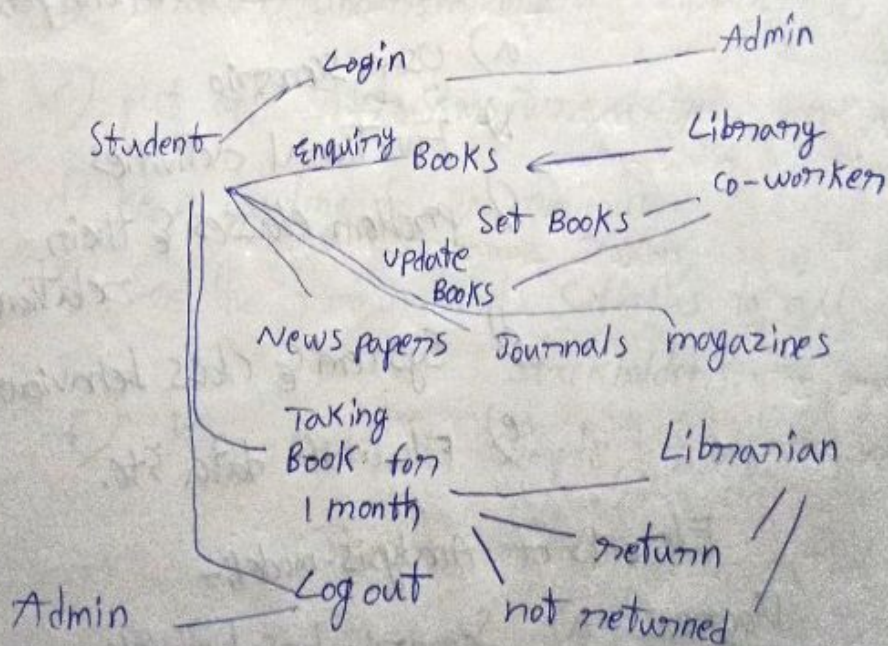 Login
Admin
Student
Enquiry
Books
Library
Co-worker
Set Books
update
Books
News papers
Journals
magazines
Taking
Book for
1 month
Librarian
return
not returned
Log out
Admin